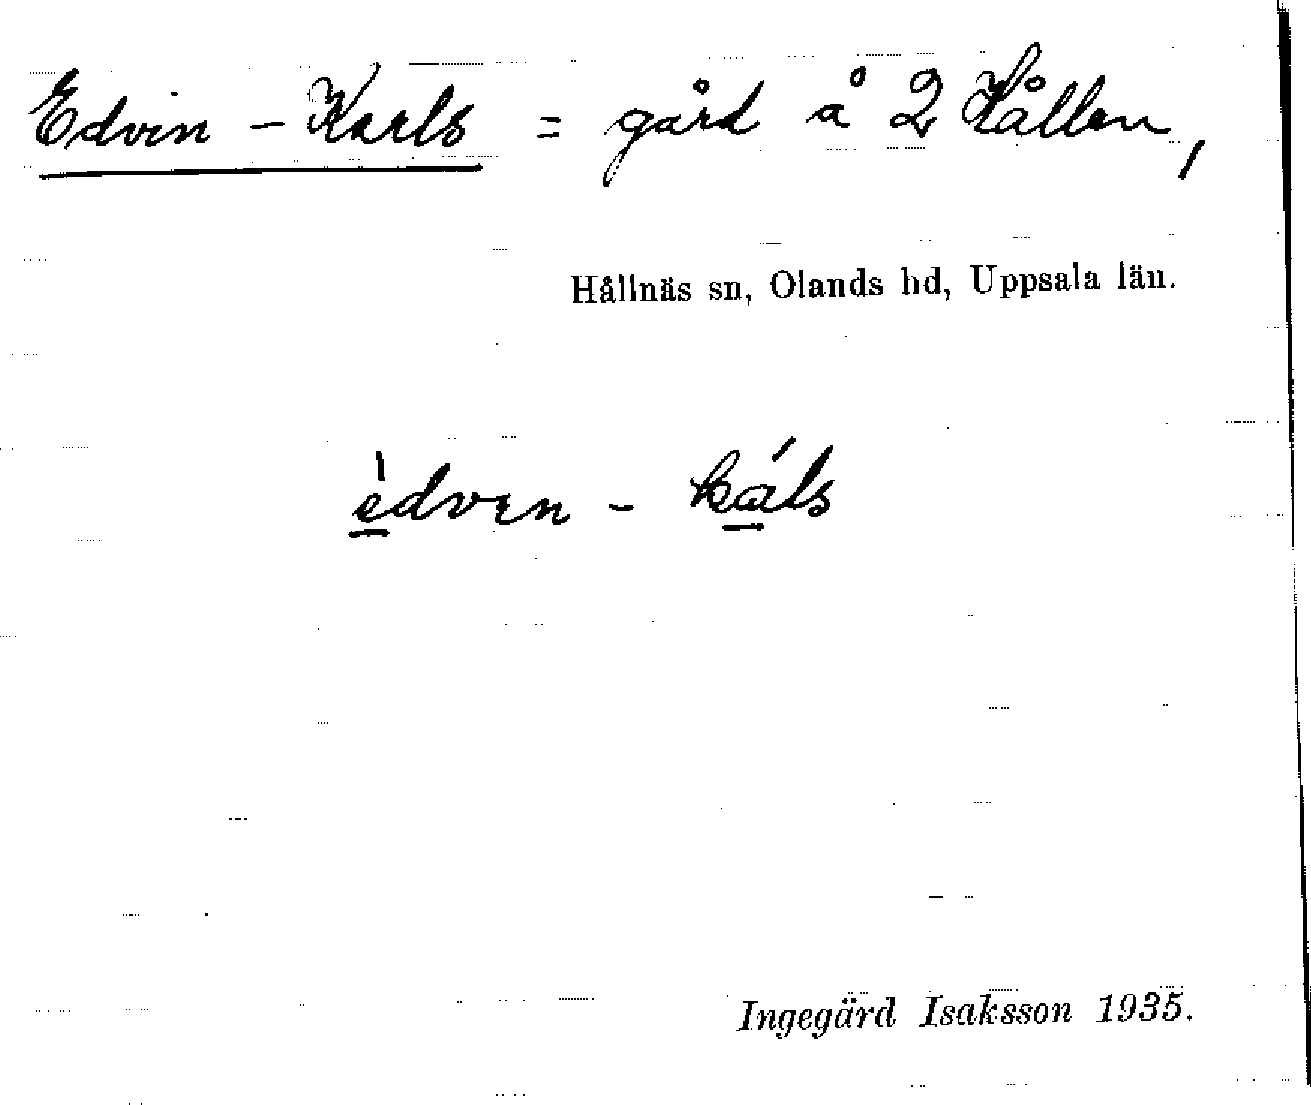 Edvin - Karls = gård å 2 Kållen,
Hållnäs sn, Olands hd, Uppsala län.
èdvɪn - káls
Ingegärd Isaksson 1935.